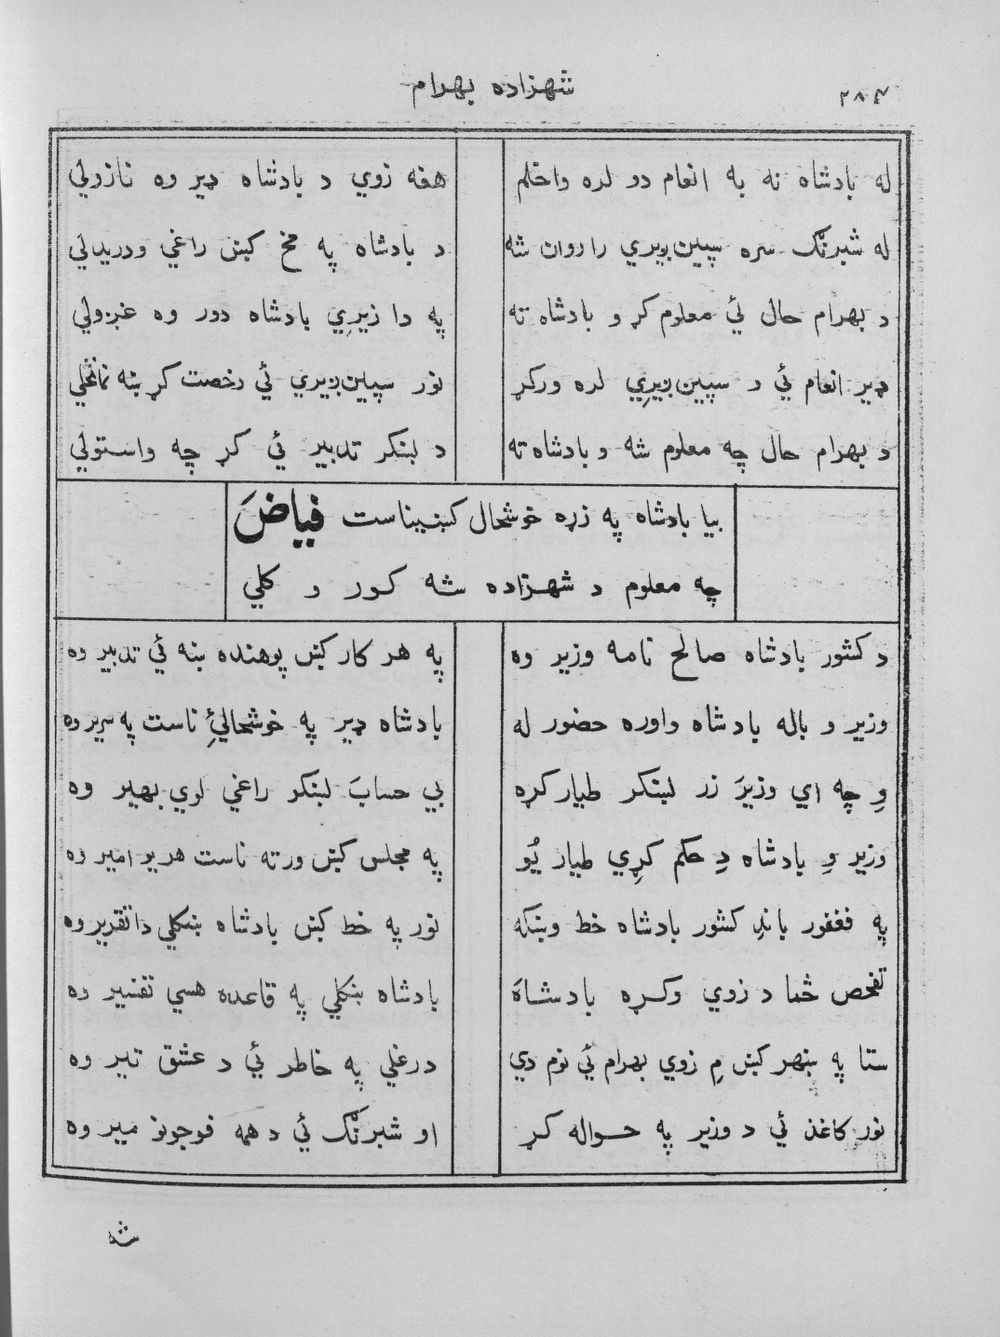 شهزاده بهرام ۲۸۴
له بادشاه نه به انعام دو لره واخلم هغه زوي د بادشاه ډیر وه نازولي
له شبرنګ سره سپین ږیري را روان شه د بادشاه په مخ کښ راغي ودریدلي
د بهرام حال ئي معلوم کړ و بادشاه ته په دا زیرِي بادشاه دور وه غږولي
ډیر انعام ئي د سپین ږیرِي لره ورکړ نور سپین ږیري ئي رخصت کړ ښه نمانځلي
د بهرام حال چه معلوم شه و بادشاه ته د لښکر تدبیر ئي کړ چه واستولي
بیا بادشاه په زړه خوشحال کښیناست فیاضَ
چه معلوم د شهزاده شه کور و کلي
د کشور بادشاه صالح نامه وزیر وه په هر کار کښ پوهنده ښه ئي تدبیر وه
وزیر و باله بادشاه واوره حضور له بادشاه ډیر په خوشحالئِ ناست په سریر وه
وِ چه اي وزیرَ زر لښکر طیار کړه بي حسابَ لښکر راغي لوي بهیر وه
وزیر وِ بادشاه دِ حکم کړِي طیار یُو په مجلس کښ ورته ناست هر یو امیر وه
په فغفور باندِ کشور بادشاه خط وښکه نور په خط کښ بادشاه ښکلي دا تقدیر وه
تفحص ځما د زوي وکړه بادشاهَ بادشاه ښکلي په قاعده هسي تفسیر وه
ستا په ښهر کښ مِ زوي بهرام ئي نوم دي درغلي په خاطر ئي د عشق تیر وه
نور کاغذ ئي د وزیر په حواله کړ او شبرنګ ئي د همه فوجونو میر وه
شه